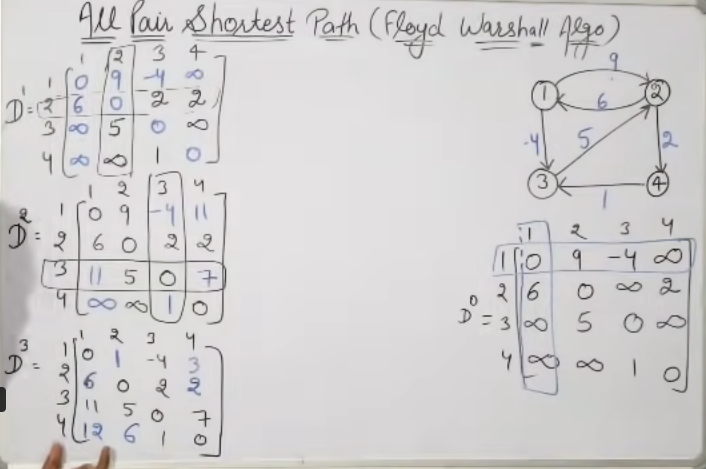 All Pair Shortest Path (Floyd Warshall Algo)
1 2 3 4
D¹ = 1 0 9 -4 ∞
2 6 0 2 2
3 ∞ 5 0 ∞
4 ∞ ∞ 1 0
1 2 3 4
D² = 1 0 9 -4 11
2 6 0 2 2
3 11 5 0 7
4 ∞ ∞ 1 0
1 2 3 4
D³ = 1 0 1 -4 3
2 6 0 2 2
3 11 5 0 7
4 12 6 1 0
9
1 2
6
-4 5 2
3 4
1
1 2 3 4
D⁰ = 1 0 9 -4 ∞
2 6 0 ∞ 2
3 ∞ 5 0 ∞
4 ∞ ∞ 1 0